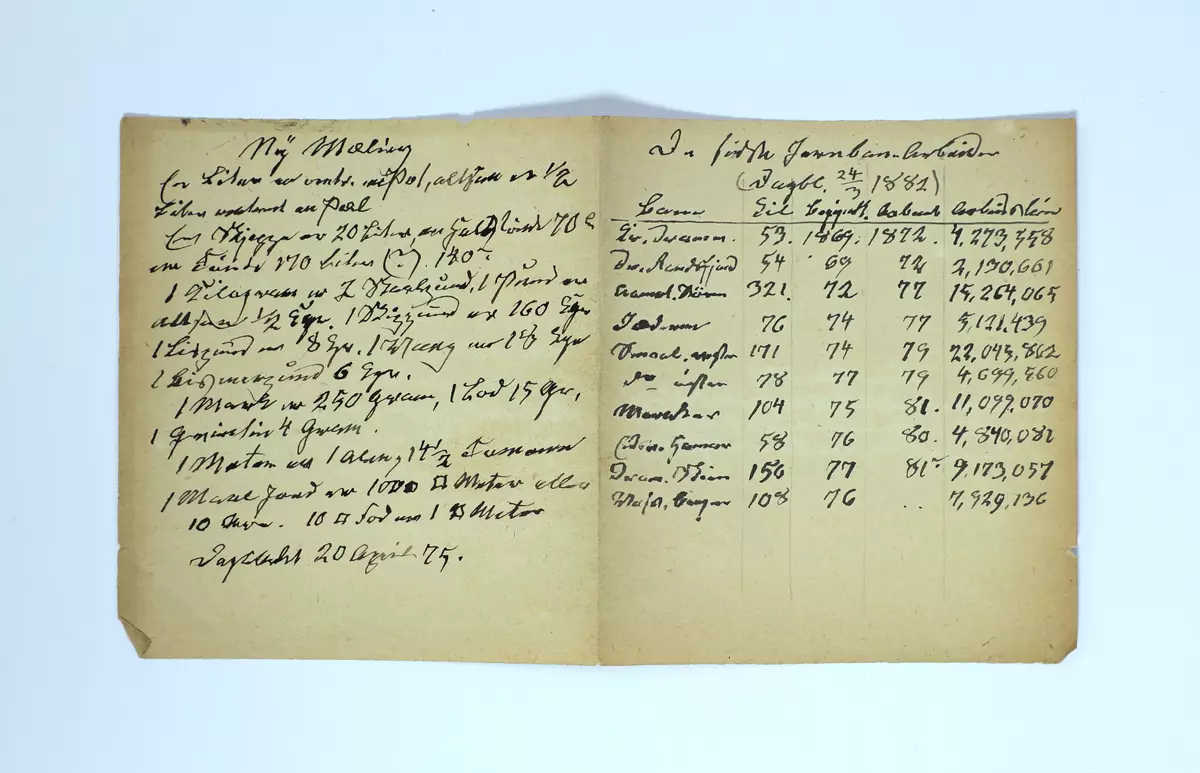 Ny Mæling
En Liter er omtr. en Pot, altsaa er 1/2
Liter omtrent en Pæl
En Skjeppe er 20 Liter, en halv Tønde 70 l
en Tønde 140 Liter (?). 140.
1 Kilogram er 2 Skaalpund, 1 Pund er
altsaa 1/2 Kgr. 1 Skippund er 160 Kgr
1 Lispund er 8 Kgr. 1 Vaag er 18 Kgr
1 Bismerpund 6 Kgr.
1 Mark er 250 Gram, 1 Lod 15 Gr,
1 Qvintin 4 Gram.
1 Meter er 1 Alen, 14 1/2 Tommer
1 Maal Jord er 1000 □ Meter eller
10 Are. 10 □ Fod er 1 □ Meter
Dagbladet 20 April 75.
De sidste Jernbane Arbeider
(Dagbl. 24/3 1882)
Bane Kil Begyndt. Aabnet Arbeidsløn
Kr. Dramm. 53. 1869. 1872. 4,273,558
Dr. Randsfjord 54 69 72 2,130,661
Hamar. Støren 321. 72 77 15,264,065
Jæderen 76 74 77 5,121,439
Smaal. vestre 171 74 79 22,043,862
do østre 78 77 79 4,699,560
Meraker 104 75 81. 11,099,070
Eidsv. Hamar 58 76 80. 4,840,082
Dram. Skien 156 77 81 9,173,057
Voss. Bergen 108 76 .. 7,929,136